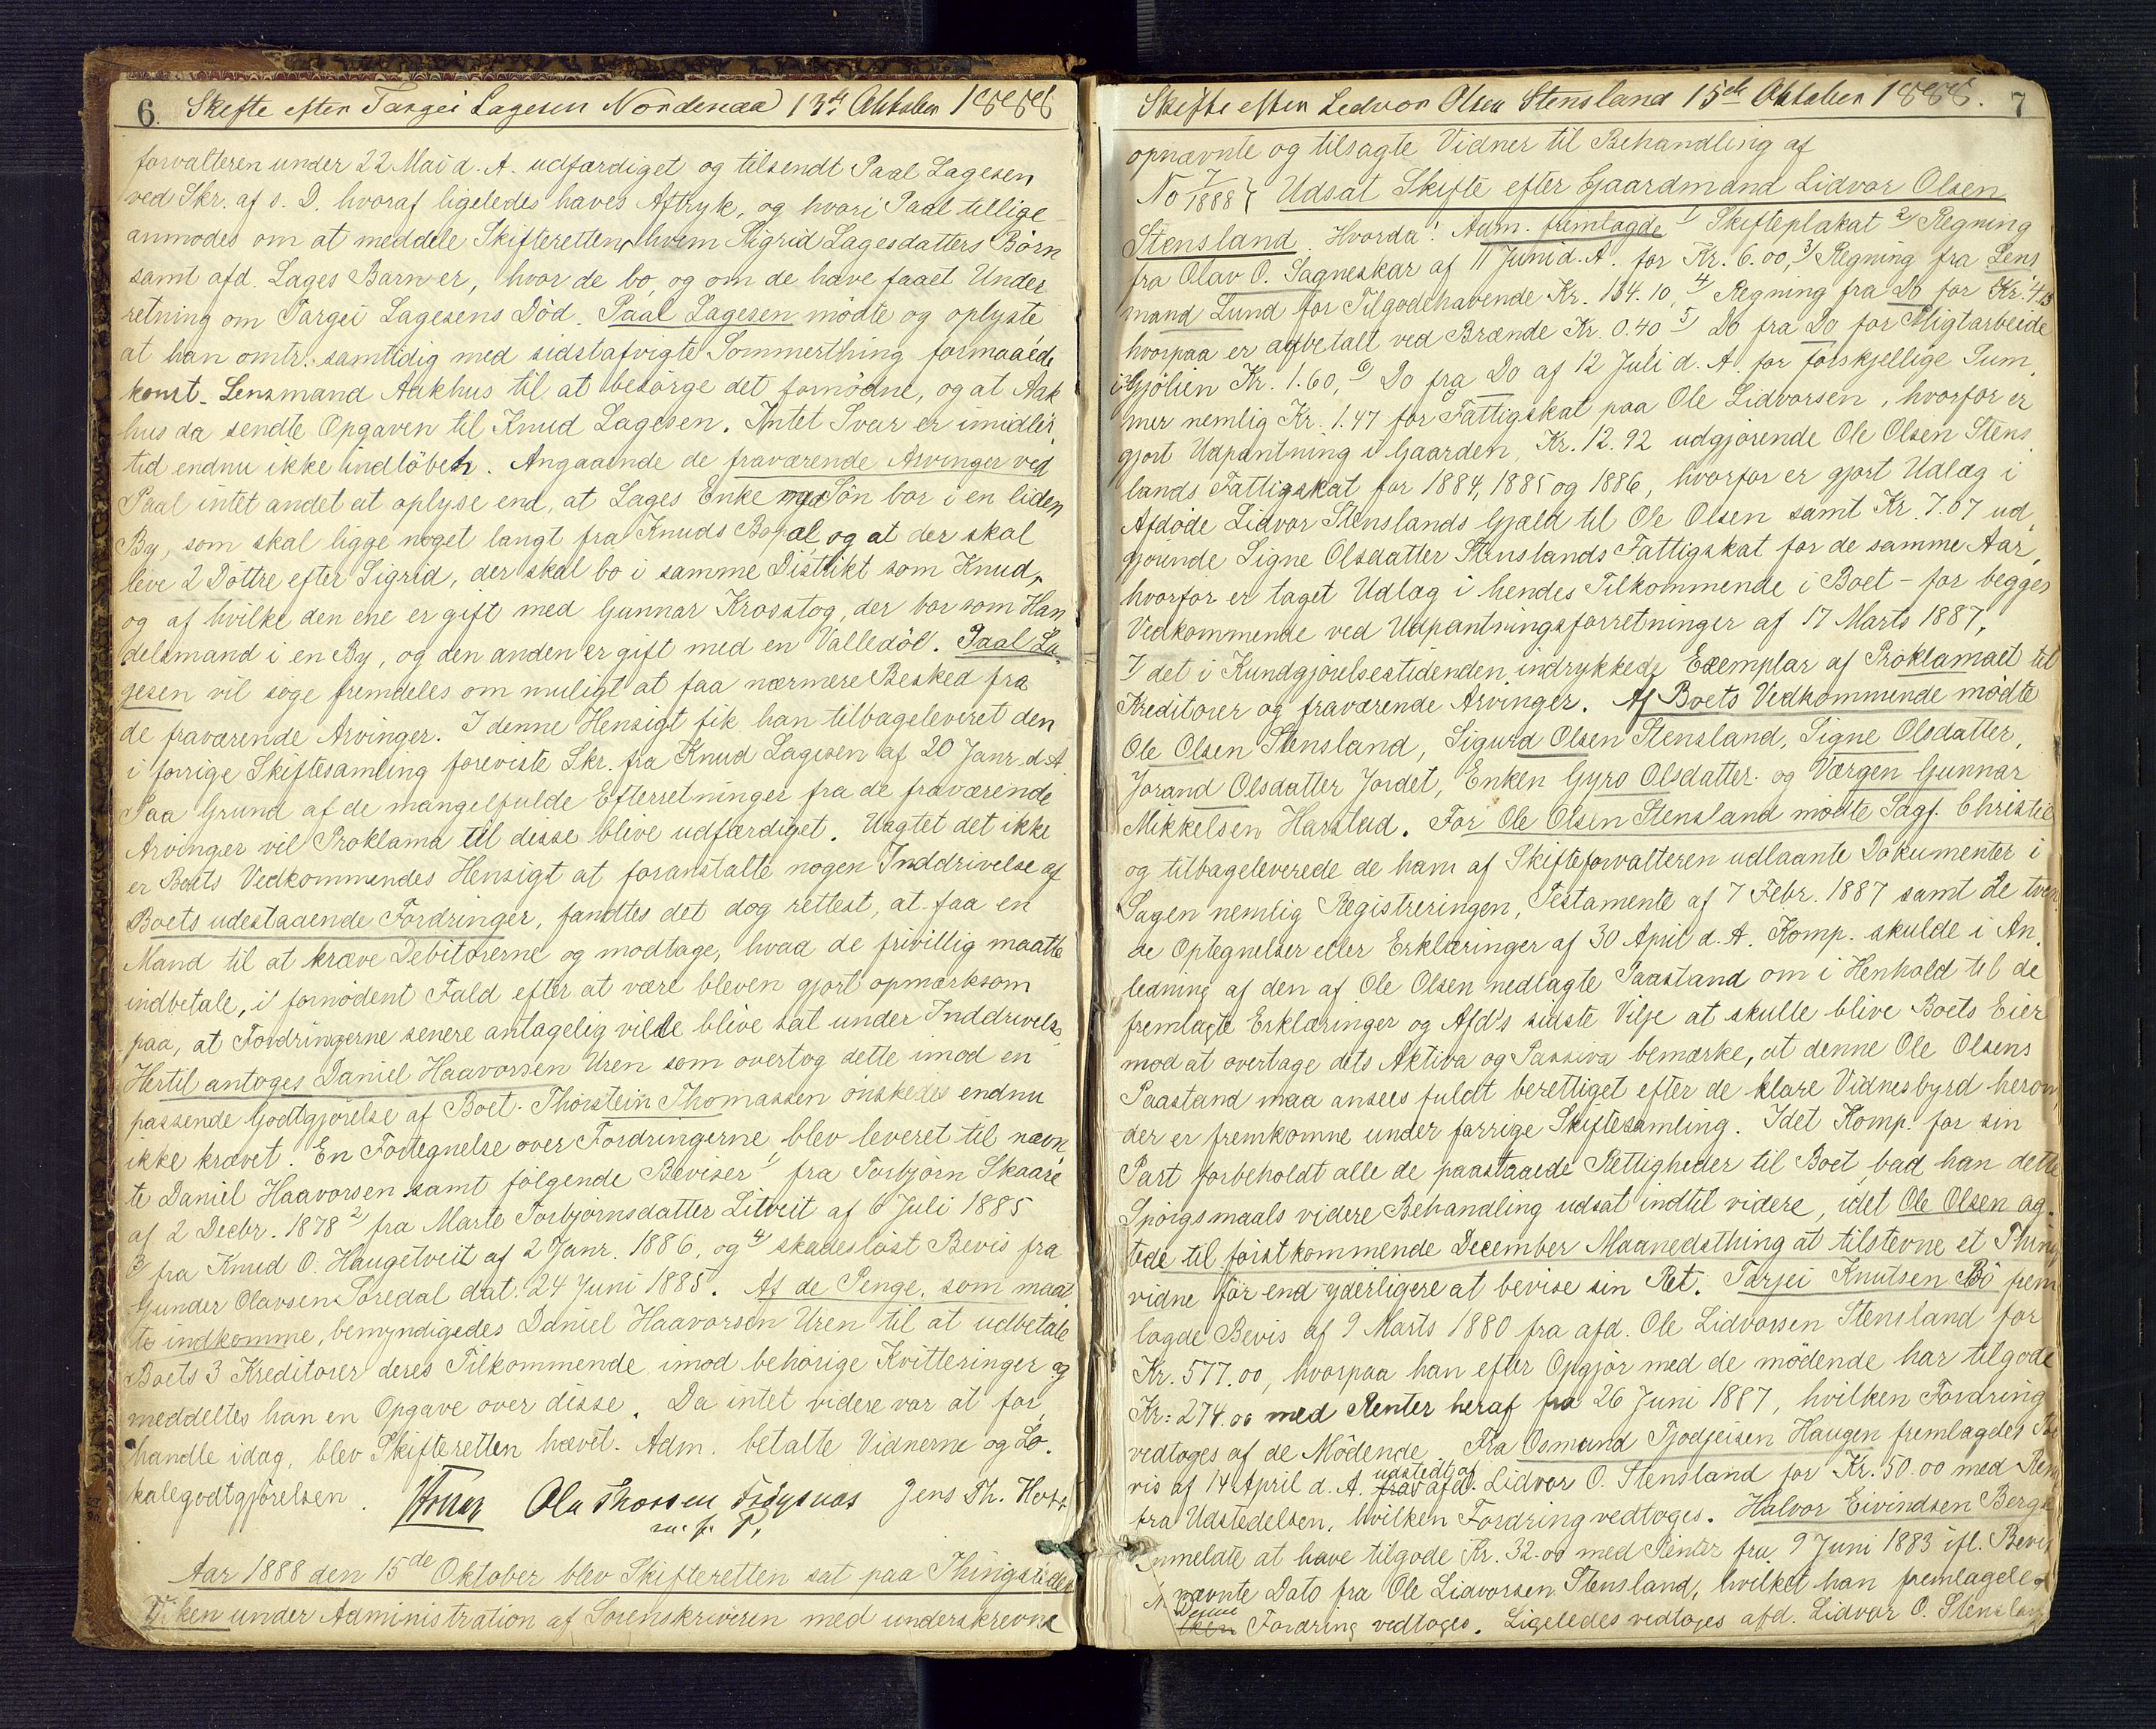 6. Skifte efter Targei Lagesen Nordenaa 13de Oktober 1888
forvalteren under 22 Mai d. A. udfærdiget og tilsendt Paal Lagesen
ved Skr. af s. D. hvoraf ligeledes haves Aftryk, og hvori Paal tillige
anmodes om at meddele Skifteretten, hvem Sigrid Lagesdatters Börn
samt afd. Lages Barn er, hvor de bo, og om de have faaet Under
retning om Targei Lagesens Död. Paal Lagesen mödte og oplyste
at han omtr. samtidig med sidstafvigte Sommerthing formaaede
konst. Lensmand Aakhus til at besörge det fornödne, og at Aak
hus da sendte Opgaven til Knud Lagesen. Intet Svar er imidler
tid endnu ikke indlöbet. Angaaende de fraværende Arvinger ved
Paal intet andet at oplyse end, at Lages Enke med Sön bor i en liden
By, som skal ligge noget langt fra Knuds Bopæl og at der skal
leve 2 Döttre efter Sigrid, der skal bo i samme Distrikt som Knud,
og af hvilke den ene er gift med Gunnar Krosstog, der bor som Han
delsmand i en By, og den anden er gift med en Valledöl. Paal La
gesen vil söge fremdeles om muligt at faa nærmere Besked fra
de fraværende Arvinger. I denne Hensigt fik han tilbageleveret den
i forrige Skiftesamling foreviste Skr. fra Knud Lagesen af 20 Janr. d. A.
Paa Grund af de mangelfulde Efterretninger fra de fraværende
Arvinger vil Proklama til disse blive udfærdiget. Uagtet det ikke
er Boets Vedkommendes Hensigt at foranstalte nogen Inddrivelse af
Boets udestaaende Fordringer, fandtes det dog rettest, at faa en
Mand til at kræve Debitorerne og modtage, hvad de frivillig maatte
indbetale, i fornödent Fald efter at være bleven gjort opmærksom
paa, at Fordringerne senere antagelig vilde blive sat under Inddrivelse.
Hertil antoges Daniel Haavorsen Uren som overtog dette imod en
passende Godtgjörelse af Boet. Thorstein Thomassen önskedes endnu
ikke krævet. En Fortegnelse over Fordringerne blev leveret til nævn
te Daniel Haavorsen samt fölgende Beviser 1) fra Torbjörn Skaare
af 2 Decbr. 1878 2) fra Marte Torbjörnsdatter Litveit af 6 Juli 1885
3 fra Knud O. Haugetveit af 2 Janr. 1886, og 4) skadeslöst Bevis fra
Gunder Olavsen Toredal dat. 24 Juni 1885. Af de Penge, som maat
te indkomme, bemyndigedes Daniel Haavorsen Uren til at udbetale
Boets 3 Kreditorer deres Tilkommende imod behörige Kvitteringer og
meddeltes han en Opgave over disse. Da intet videre var at for
handle idag, blev Skifteretten hævet. Adm. betalte Vidnerne og Lo-
kalegodtgjörelsen. Ole Thorsen Jens Th.
m. p. P.
Aar 1888 den 15de Oktober blev Skifteretten sat paa Thingstedet
under Administration af Sorenskriveren med underskrevne
Skifte efter Ledvor Olsen Stensland 15de Oktober 1888. 7
opnævnte og tilsagte Vidner til Behandling af
No 7/1888 } Udsat Skifte efter Gaardmand Lidvor Olsen
Stensland. Hvorda: Adm. fremlagde 1) Skifteplakat 2) Regning
fra Olav O. Sagneskar af 11 Juni d. A. for Kr. 6.00, 3) Regning fra Lens
mand Lund for Tilgodehavende Kr. 134.10, 4) Regning fra Do for Kr. 4.13
hvorpaa er afbetalt ved Brænde Kr. 0.40 5) Do fra Do for Pligtarbeide
i Gjölien Kr. 1.60, 6) Do fra Do af 12 Juli d. A. for forskjellige Sum
mer nemlig Kr. 1.47 for Fattigskat paa Ole Lidvorsen, hvorfor er
gjort Udpantning i Gaarden, Kr. 12.92 udgjörende Ole Olsen Stens
lands Fattigskat for 1884, 1885 og 1886, hvorfor er gjort Udlæg i
Afdöde Lidvor Stenslands Gjæld til Ole Olsen samt Kr. 7.07 ud
gjörende Signe Olsdatter Stenslands Fattigskat for de samme Aar,
hvorfor er taget Udlæg i hendes Tilkommende i Boet – for begges
Vedkommende ved Udpantningsforretninger af 17 Marts 1887,
7/ det i Kundgjörelsestidenden indrykkede Exemplar af Proklamaet til
Kreditorer og fraværende Arvinger. Af Boets Vedkommende mödte
Ole Olsen Stensland, Sigurd Olsen Stensland, Signe Olsdatter,
Jorand Olsdatter Jordet, Enken Gyro Olsdatter og Værgen Gunnar
Mikkelsen Harstad. For Ole Olsen Stensland mödte Sagf. Christie
og tilbageleverede de ham af Skifteforvalteren udlaante Dokumenter i
Sagen nemlig Registreringen, Testamente af 7 Febr. 1887 samt de tven
de Optegnelser eller Erklæringer af 30 April d. A. Komp. skulde i An
ledning af den af Ole Olsen nedlagte Paastand om i Henhold til de
fremlagte Erklæringer og Afd's sidste Vilje at skulle blive Boets Eier
mod at overtage dets Aktiva og Passiva bemærke, at denne Ole Olsens
Paastand maa ansees fuldt berettiget efter de klare Vidnesbyrd herom,
der er fremkomne under forrige Skiftesamling. Idet Komp. for sin
Part forbeholdt alle de paastaaede Rettigheder til Boet, bad han dette
Spörgsmaals videre Behandling udsat indtil videre, idet Ole Olsen ag-
tede til förstkommende December Maanedsthing at tilstevne et Thing
vidne för end yderligere at bevise sin Ret. Tarjei Knutsen Bö frem
lagde Bevis af 9 Marts 1880 fra afd. Ole Lidvorsen Stensland for
Kr. 577.00, hvorpaa han efter Opgjör med de mödende har tilgode
Kr: 274.00 med Renter heraf fra 26 Juni 1887, hvilken Fordring
vedtoges af de Mödende. Fra Osmund Tjodjeisen Haugen fremlagdes Be
vis af 14 April d. A. udstedt af afd. Lidvor O. Stensland for Kr. 50.00 med Rent
fra Udstedelsen, hvilken Fordring vedtoges. Halvor Eivindsen Berg
anmeldte at have tilgode Kr. 32.00 med Renter fra 9 Juni 1883 ifl. Bevis
nævnte Dato fra Ole Lidvorsen Stensland, hvilket han fremlagde.
Denne Fordring vedtoges. Ligeledes vedtoges afd. Lidvor O. Stensland